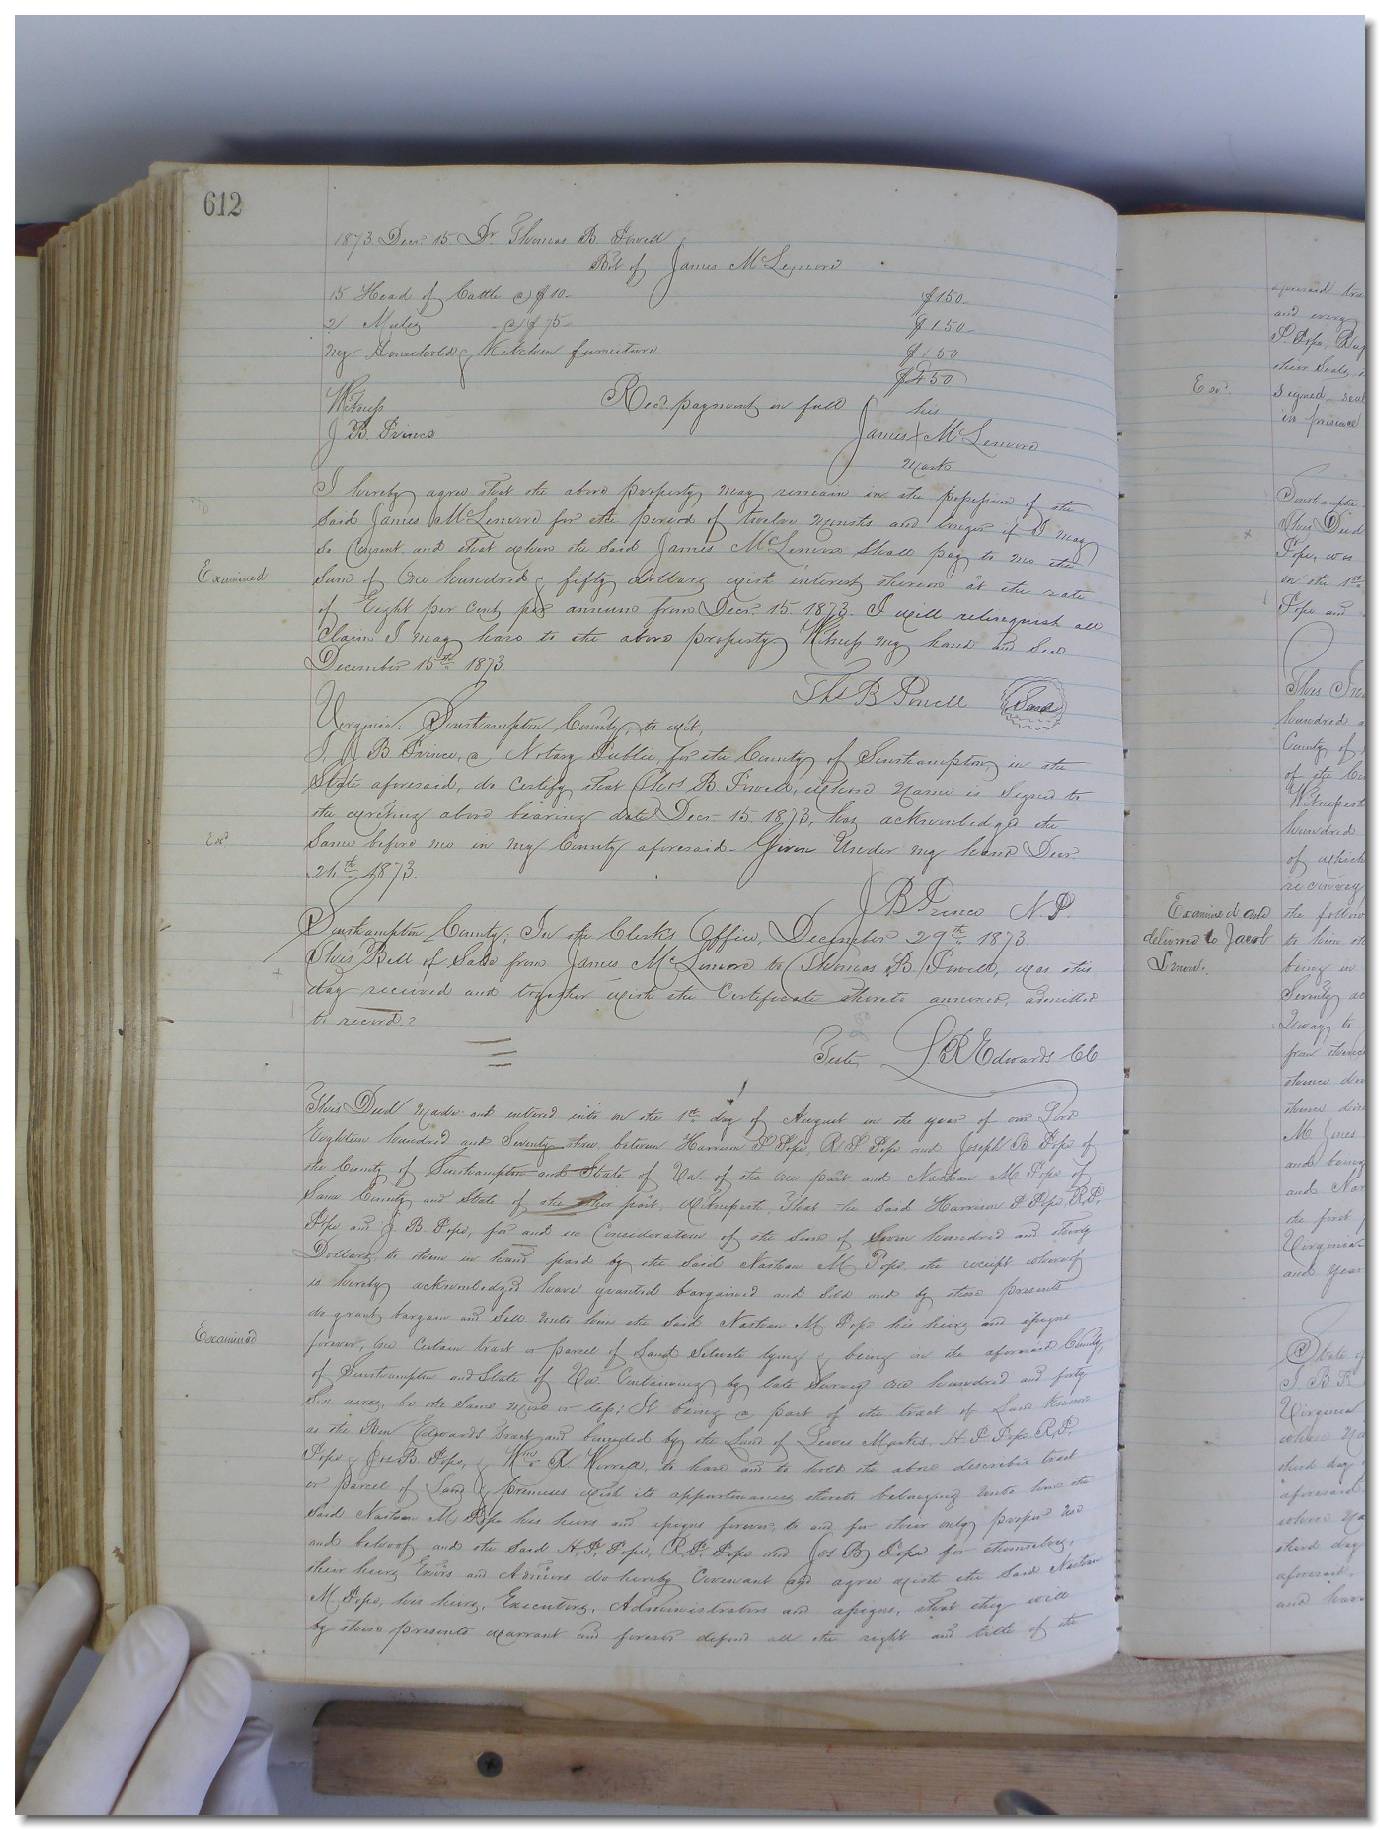 612
1873 Decr 15 Dr Thomas B Powell
Bot of James McLemore
15 Head of Cattle @ $10- $150-
2 Mules @ $75- $150-
my Household & Kitchen furniture $150
$450
Witness Recd payment in full his
J B. Prince James X McLemore
Mark
I hereby agree that the above property may remain in the possession of the
said James McLemore for the period of twelve months and longer if I may
so Consent and that when the said James McLemore shall pay to me the
Examined
Sum of One hundred & fifty dollars with interest thereon at the rate
of Eight per Cent per annum from Decr 15. 1873. I will relinquish all
Claim I may have to the above property Witness my hand and Seal
December 15th 1873
Ths B Powell Seal
Virginia. Southampton County, to wit,
I, J B Prince, a Notary Public, for the County of Southampton, in the
State aforesaid, do Certify that Thos B. Powell, whose Name is signed to
the writing above bearing date Decr 15 1873, has acknowledged the
Exd
Same before me in my County aforesaid- Given Under my hand Decr
24th 1873.
J B Prince N. P.
Southampton County; In the Clerks Office, December 29th 1873
This Bill of Sale from James McLemore to Thomas B Powell, was this
day received and together with the Certificate thereto annexed, admitted
to record.
Teste, L. R Edwards CC
This Deed made and entered into on the 1st day of August in the year of our Lord
Eighteen hundred and Seventy between Harrison P Pope, R P Pope and Joseph B Pope of
the County of Southampton and State of Va. of the one part and Nathan M Pope of
Same County and State of the other part, Witnesseth, That the Said Harrison P Pope, R. P.
Pope and J B Pope, for and in Consideration of the sum of Seven hundred and thirty
Dollars, to them in hand paid by the Said Nathan M Pope the receipt whereof
is hereby acknowledged have granted bargained and Sold and by these presents
do grant, bargain and Sell unto him the said Nathan M Pope his heirs and assigns
Examined
forever, one Certain tract or parcel of Land Situate lying & being in the aforesaid County
of Southampton and State of Va. Containing by late Survey one hundred and forty
Six acres, be the Same more or less; It being a part of the tract of Land known
as the Ben Edwards tract and bounded by the Land of Lewis H P Pope R. P.
Pope & Jos B. Pope, & Wm Worrell, to have and to hold the above described tract
or parcel of Land & premises with its appurtenances thereto belonging unto him the
Said Nathan M Pope his heirs and assigns forever, to and for their only proper use
and behoof and the Said H. P. Pope, R. P. Pope and Jos B Pope for themselves,
their heirs Exors and Admors do hereby Covenant and agree with the Said Nathan
M Pope, his heirs, Executors, Administrators and assigns, that they will
by these presents warrant and forever defend all the right and title of the
and every
P. Pope,
their Seals,
Exd.
signed, seal
in presence
Southampton
This Deed
Pope, was
on the 1st
Pope and
hundred
County of
of the
hundred
of which
reconvey
Examined and the follow
delivered to Jacob to him
being in
Seventy
from
M Jones
and being
and Nor
the first
Virginia
and year
State of
I B
Virginia
third day
aforesaid.
third day
aforesaid.
and have